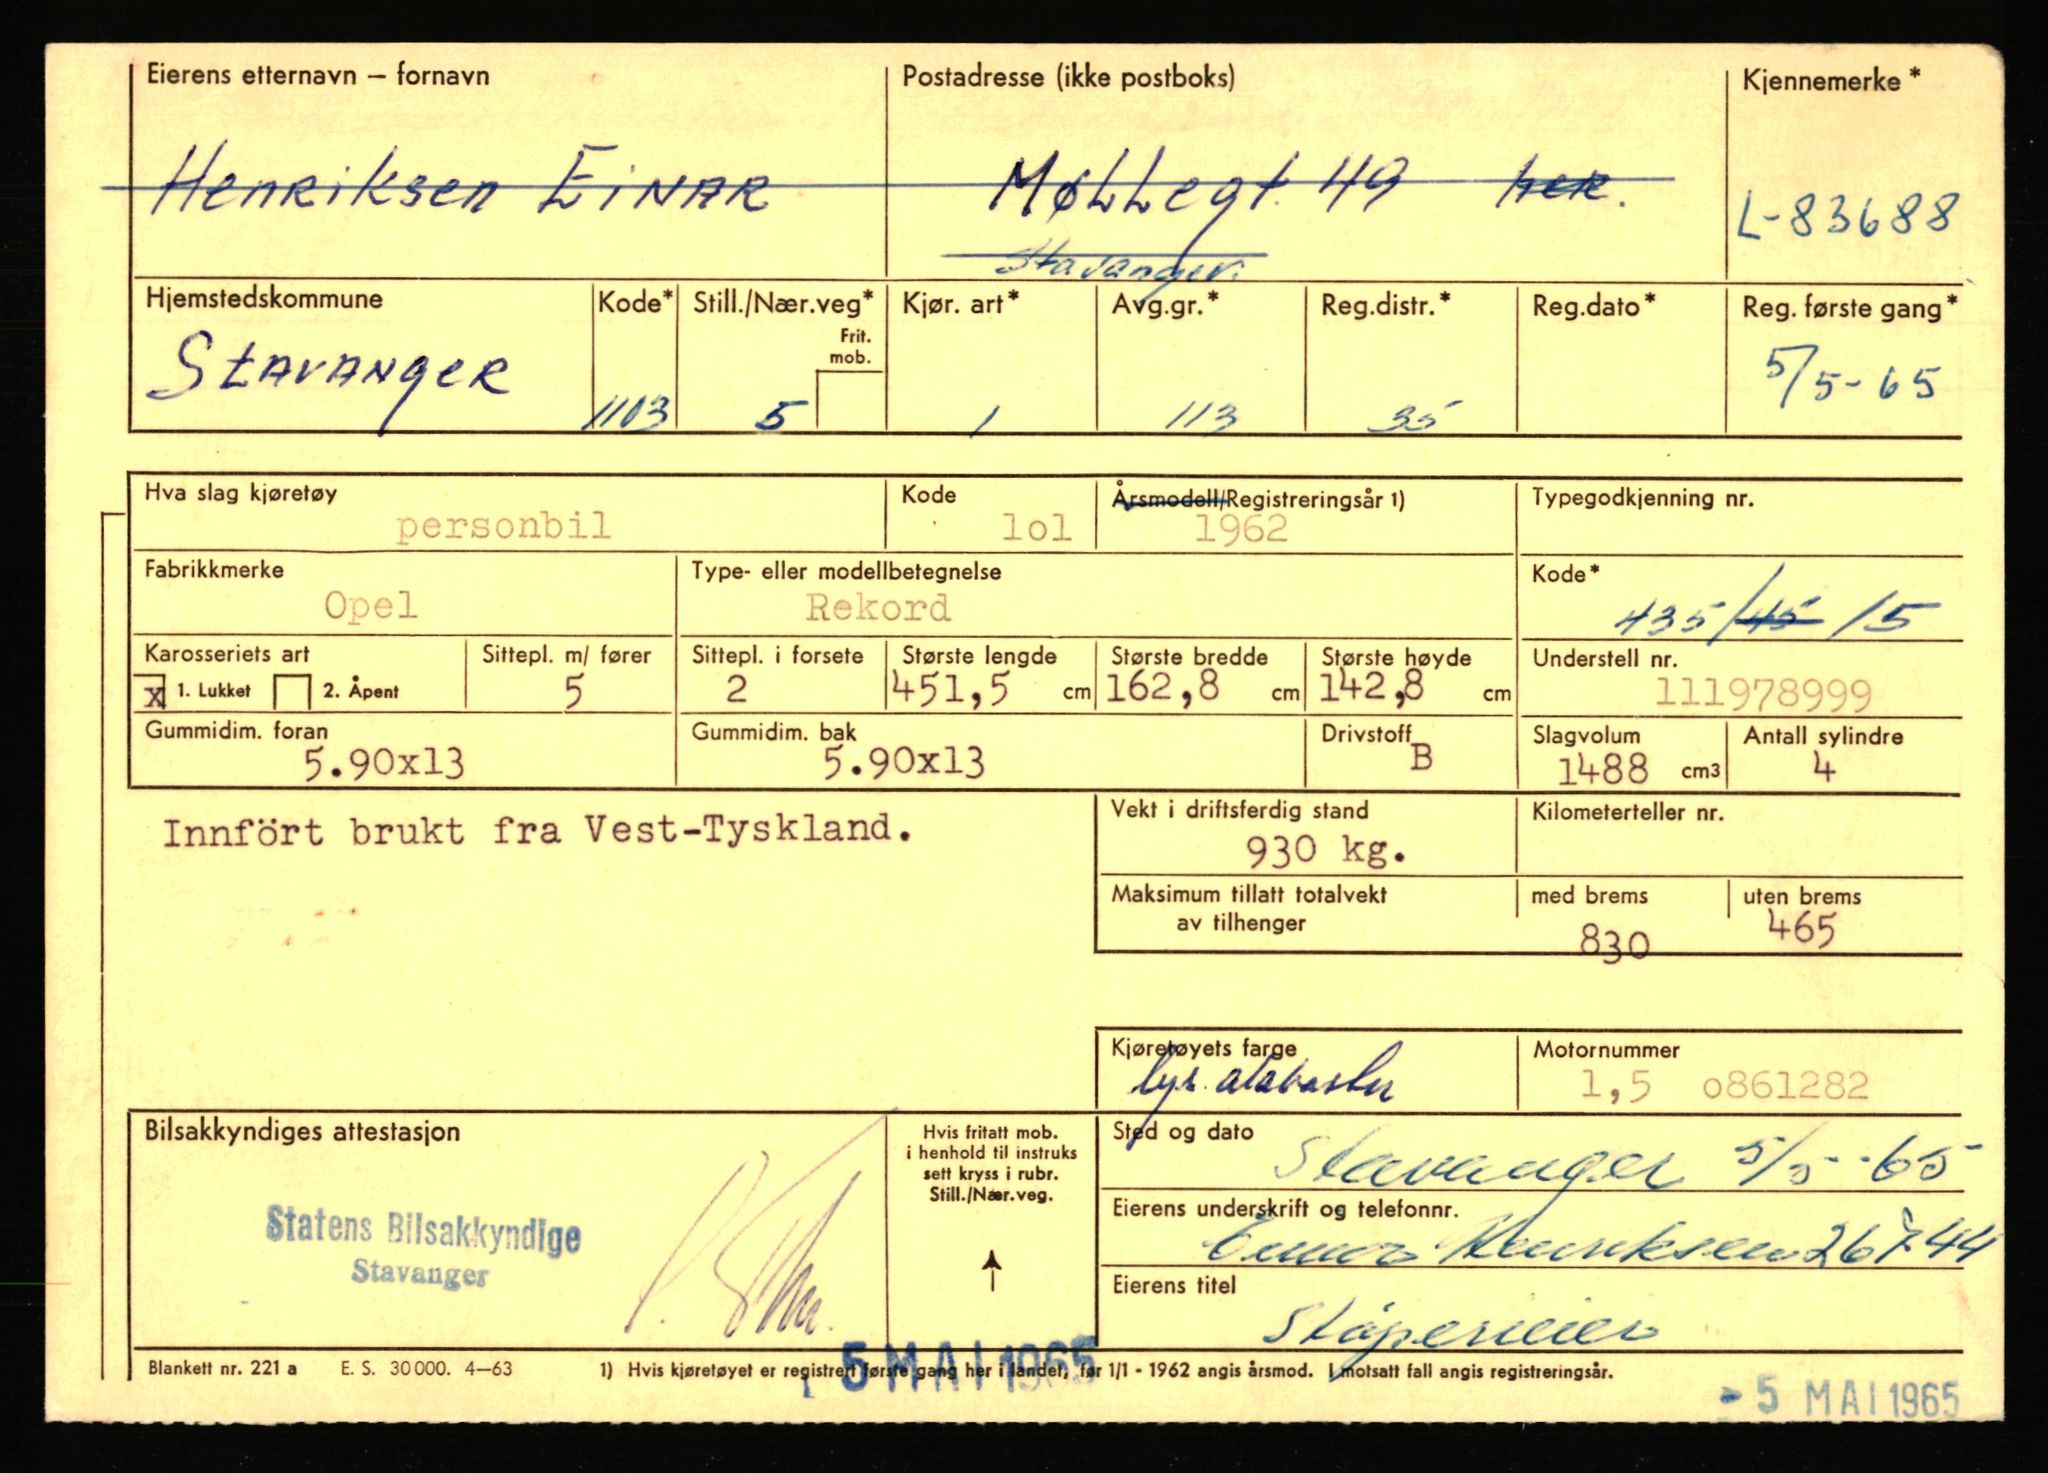 Eierens etternavn – fornavn Postadresse (ikke postboks) Kjennemerke*
Henriksen Einar Møllegt. 49 her.
L-83688
Stavanger.
Hjemstedskommune Kode* Still./Nær.veg* Kjør. art* Avg.gr.* Reg.distr.* Reg.dato* Reg. første gang*
Frit.
mob.
Stavanger 1103 5 1 113 35 5/5-65
Hva slag kjøretøy Kode Årsmodell/Registreringsår 1) Typegodkjenning nr.
personbil lol 1962
Fabrikkmerke Type- eller modellbetegnelse Kode*
Opel Rekord 435/45/15
Karosseriets art Sittepl. m/ fører Sittepl. i forsete Største lengde Største bredde Største høyde Understell nr.
x 1. Lukket 2. Åpent 5 2 451,5 cm 162,8 cm 142,8 cm 111978999
Gummidim. foran Gummidim. bak Drivstoff Slagvolum Antall sylindre
5.90x13 5.90x13 B 1488 cm3 4
Innfört brukt fra Vest-Tyskland.
Vekt i driftsferdig stand Kilometerteller nr.
930 kg.
Maksimum tillatt totalvekt med brems uten brems
av tilhenger 830 465
Kjøretøyets farge Motornummer
lys alabaster 1,5 o861282
Bilsakkyndiges attestasjon
Hvis fritatt mob.
i henhold til instruks
sett kryss i rubr.
Still./Nær.veg.
Sted og dato
Stavanger 5/5-65
Eierens underskrift og telefonnr.
Einar Henriksen 26744
Statens Bilsakkyndige
Stavanger
Eierens titel
Støperieier
Blankett nr. 221 a E. S. 30 000. 4–63 1) Hvis kjøretøyet er registrert første gang her i landet, før 1/1 - 1962 angis årsmod. I motsatt fall angis registreringsår.
5 MAI 1965
- 5 MAI 1965